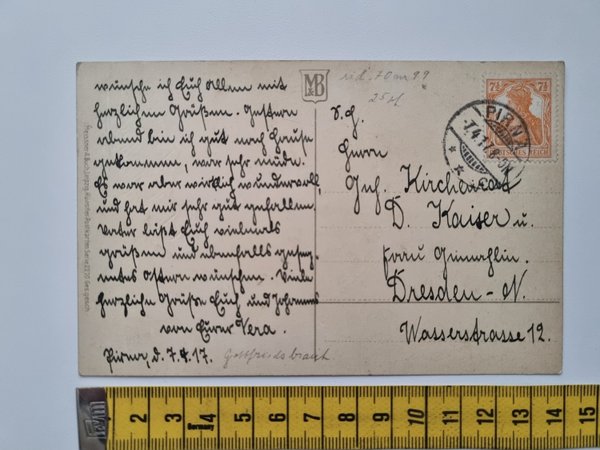 wünsche ich Euch allen mit
herzlichen Grüßen. Gestern
abend bin ich gut nach Hause
gekommen, war sehr müde.
Es war aber wirklich wundervoll,
und hat mir sehr gut gefallen.
Vater läßt Euch vielmals
grüßen und ebenfalls gesegnetes Ostern wünschen. Viele
herzliche Grüße Euch und Johannes
von Eurer Vera.
Pirna, d. 7.4.17.
Gottfrieds braut
MB
25
7½ 7½
DEUTSCHES REICH
PIRNA
7.4.17.
S. H.
Herrn
Geh. Kirchenrat
D. Kaiser u.
Frau Gemahlin.
Dresden-N.
Wasserstrasse 12.
2 3 4 5 6 7 8 9 10 11 12 13 14 15
Germany